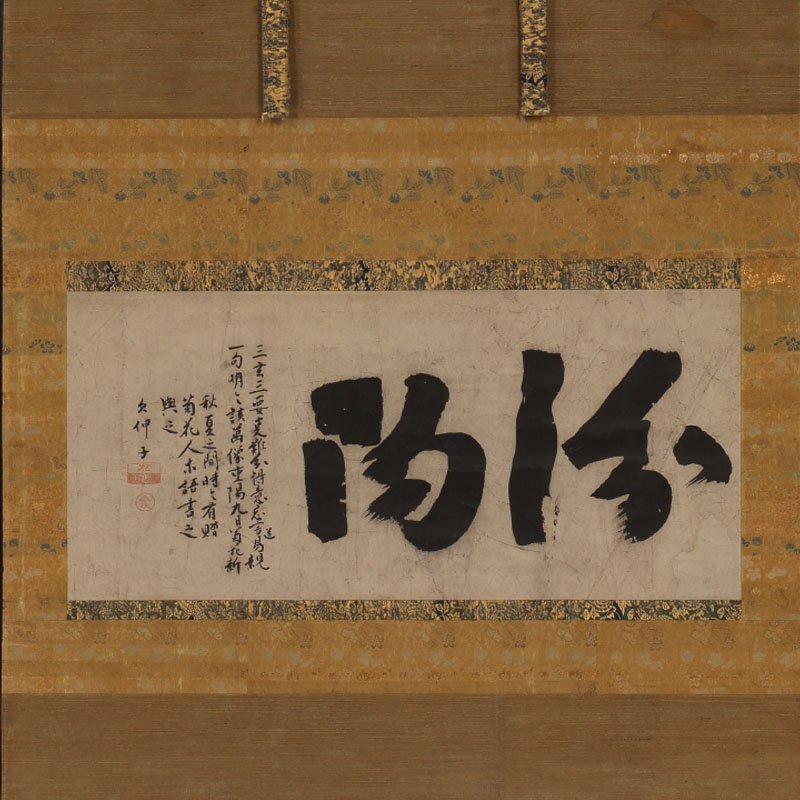 汾陽
三玄三要事難分得意忘言道易親
一句明々該萬像重陽九日菊花新
秋夏之間時々有贈
菊花人求語書之
與之
欠伸子